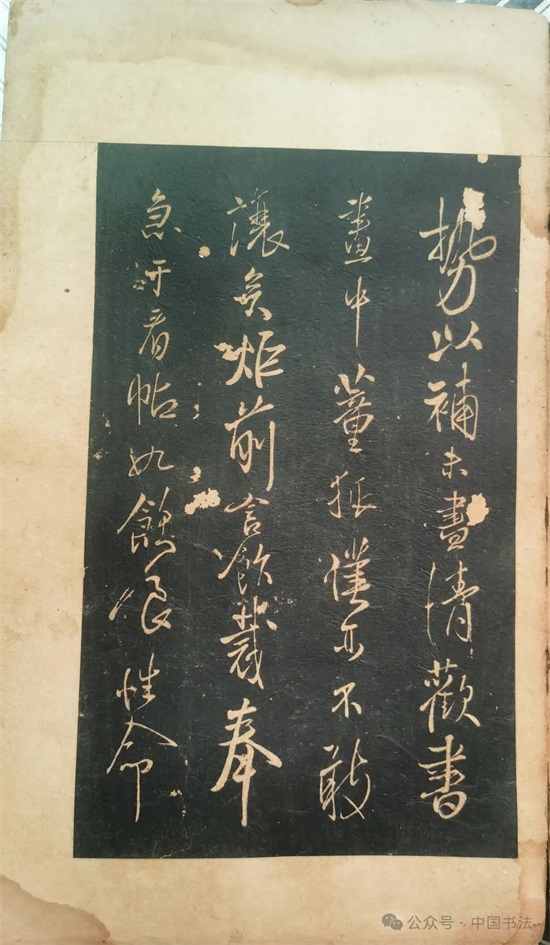 勢以補未盡清歡書
畫中董狐僕亦不敢
讓矣炬前言飲裁奉
急訝看帖如餓性命
公众号·中国书法